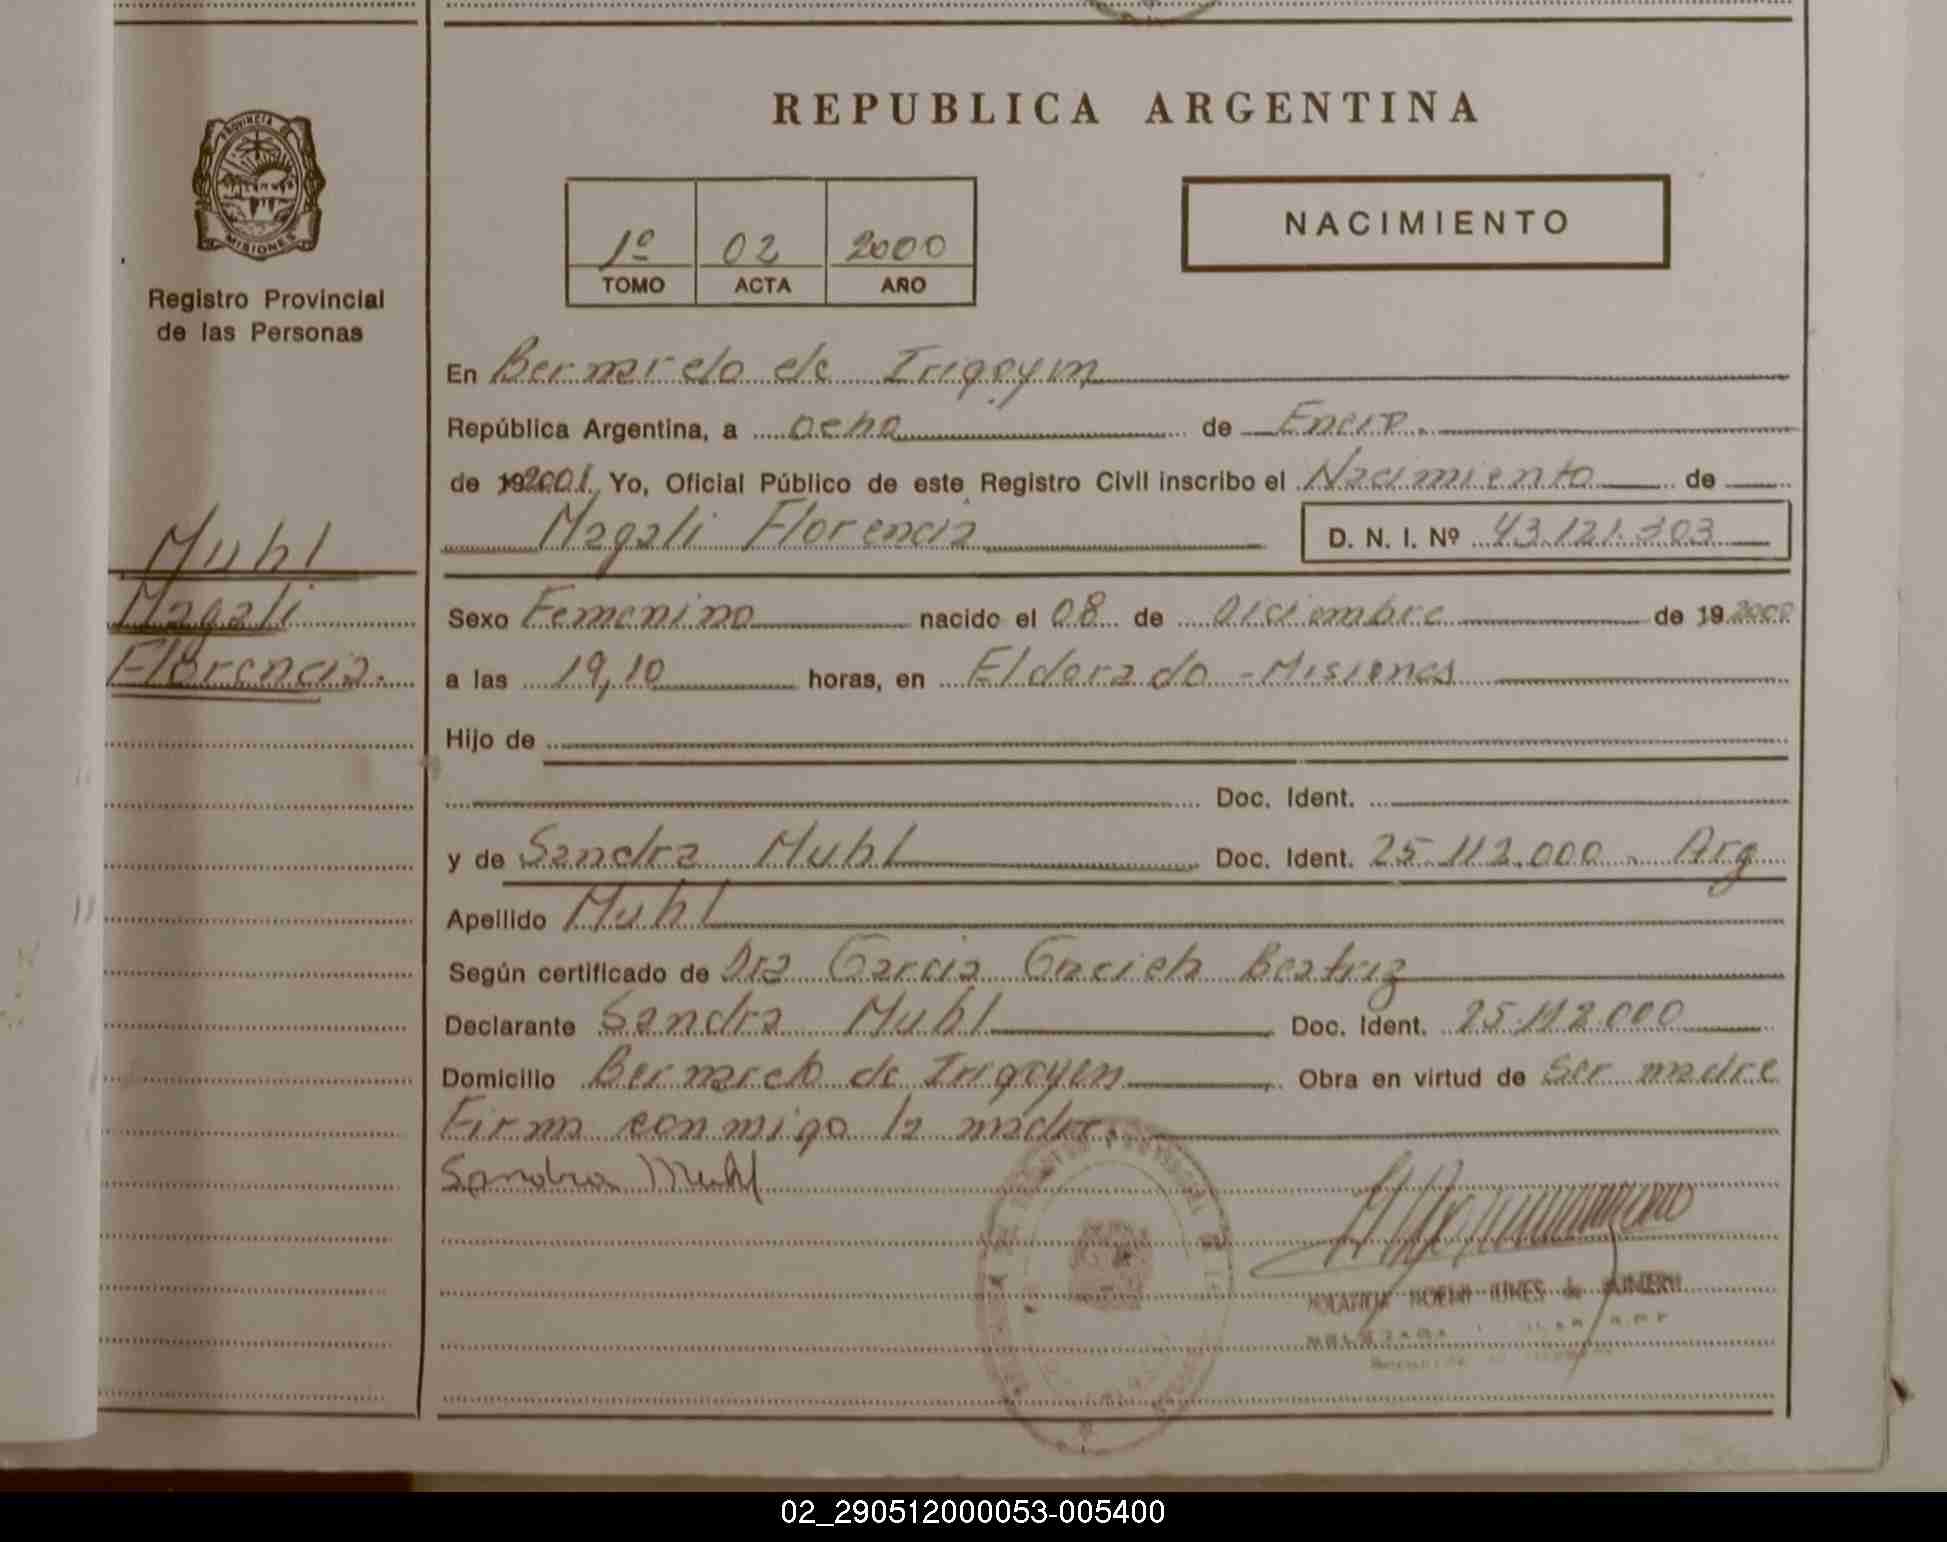 REPUBLICA ARGENTINA
PROVINCIA DE
MISIONES
Registro Provincial
de las Personas
1º 02 2000
TOMO ACTA AÑO
NACIMIENTO
En Bernardo de Irigoyen
República Argentina, a ocho de Enero.
de 192001. Yo, Oficial Público de este Registro Civil inscribo el Nacimiento de
Magali Florencia D. N. I. Nº 43.121.303
Muhl
Magali
Florencia.
Sexo Femenino nacido el 08 de Diciembre de 19 2000
a las 19,10 horas, en Eldorado - Misiones
Hijo de
Doc. Ident.
y de Sandra Muhl Doc. Ident. 25.112.000 - Arg
Apellido Muhl
Según certificado de Dra Garcia Beatriz
Declarante Sandra Muhl Doc. Ident. 25.112.000
Domicilio Bernardo de Irigoyen Obra en virtud de Ser madre
Firma conmigo la madre.
Sandra Muhl
NOEMI de
02_290512000053-005400